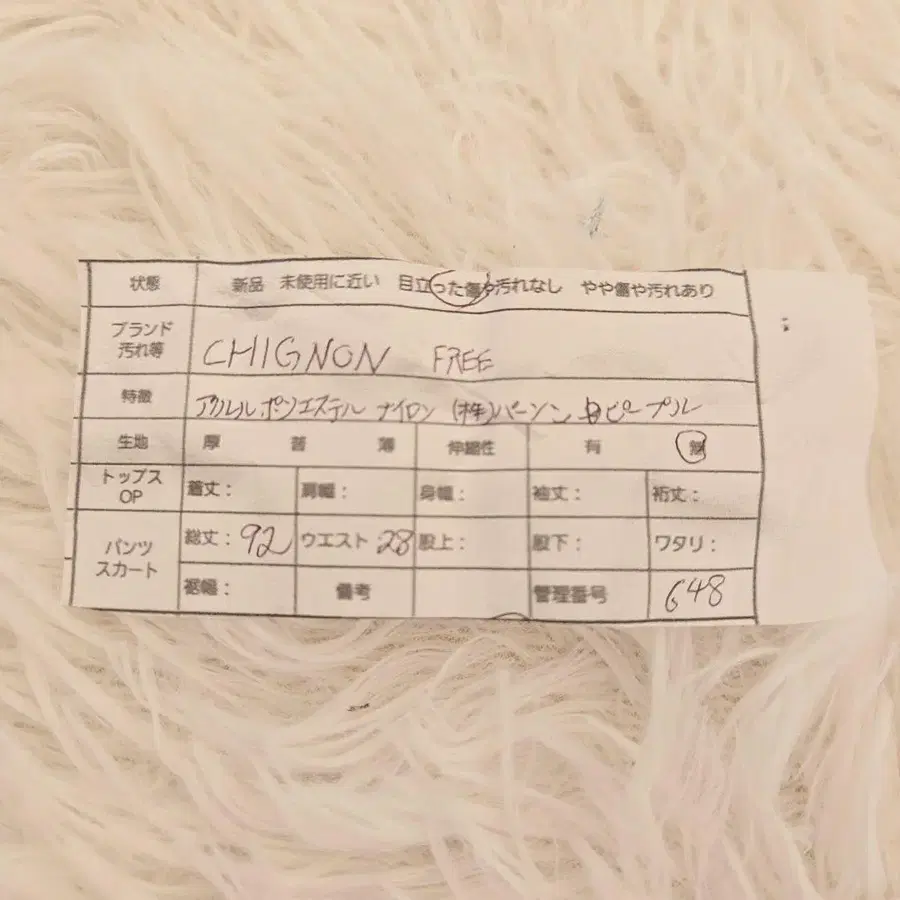 状態 新品 未使用に近い 目立った傷や汚れなし やや傷や汚れあり
ブランド
汚れ等 CHIGNON FREE
特徴 アクリル ポリエステル ナイロン (株)パーソンピープル
生地 厚 普 薄 伸縮性 有 無
トップス
OP 着丈: 肩幅: 身幅: 袖丈: 裄丈:
パンツ
スカート 総丈:92 ウエスト 28 股上: 股下: ワタリ:
裾幅: 備考 管理番号 648